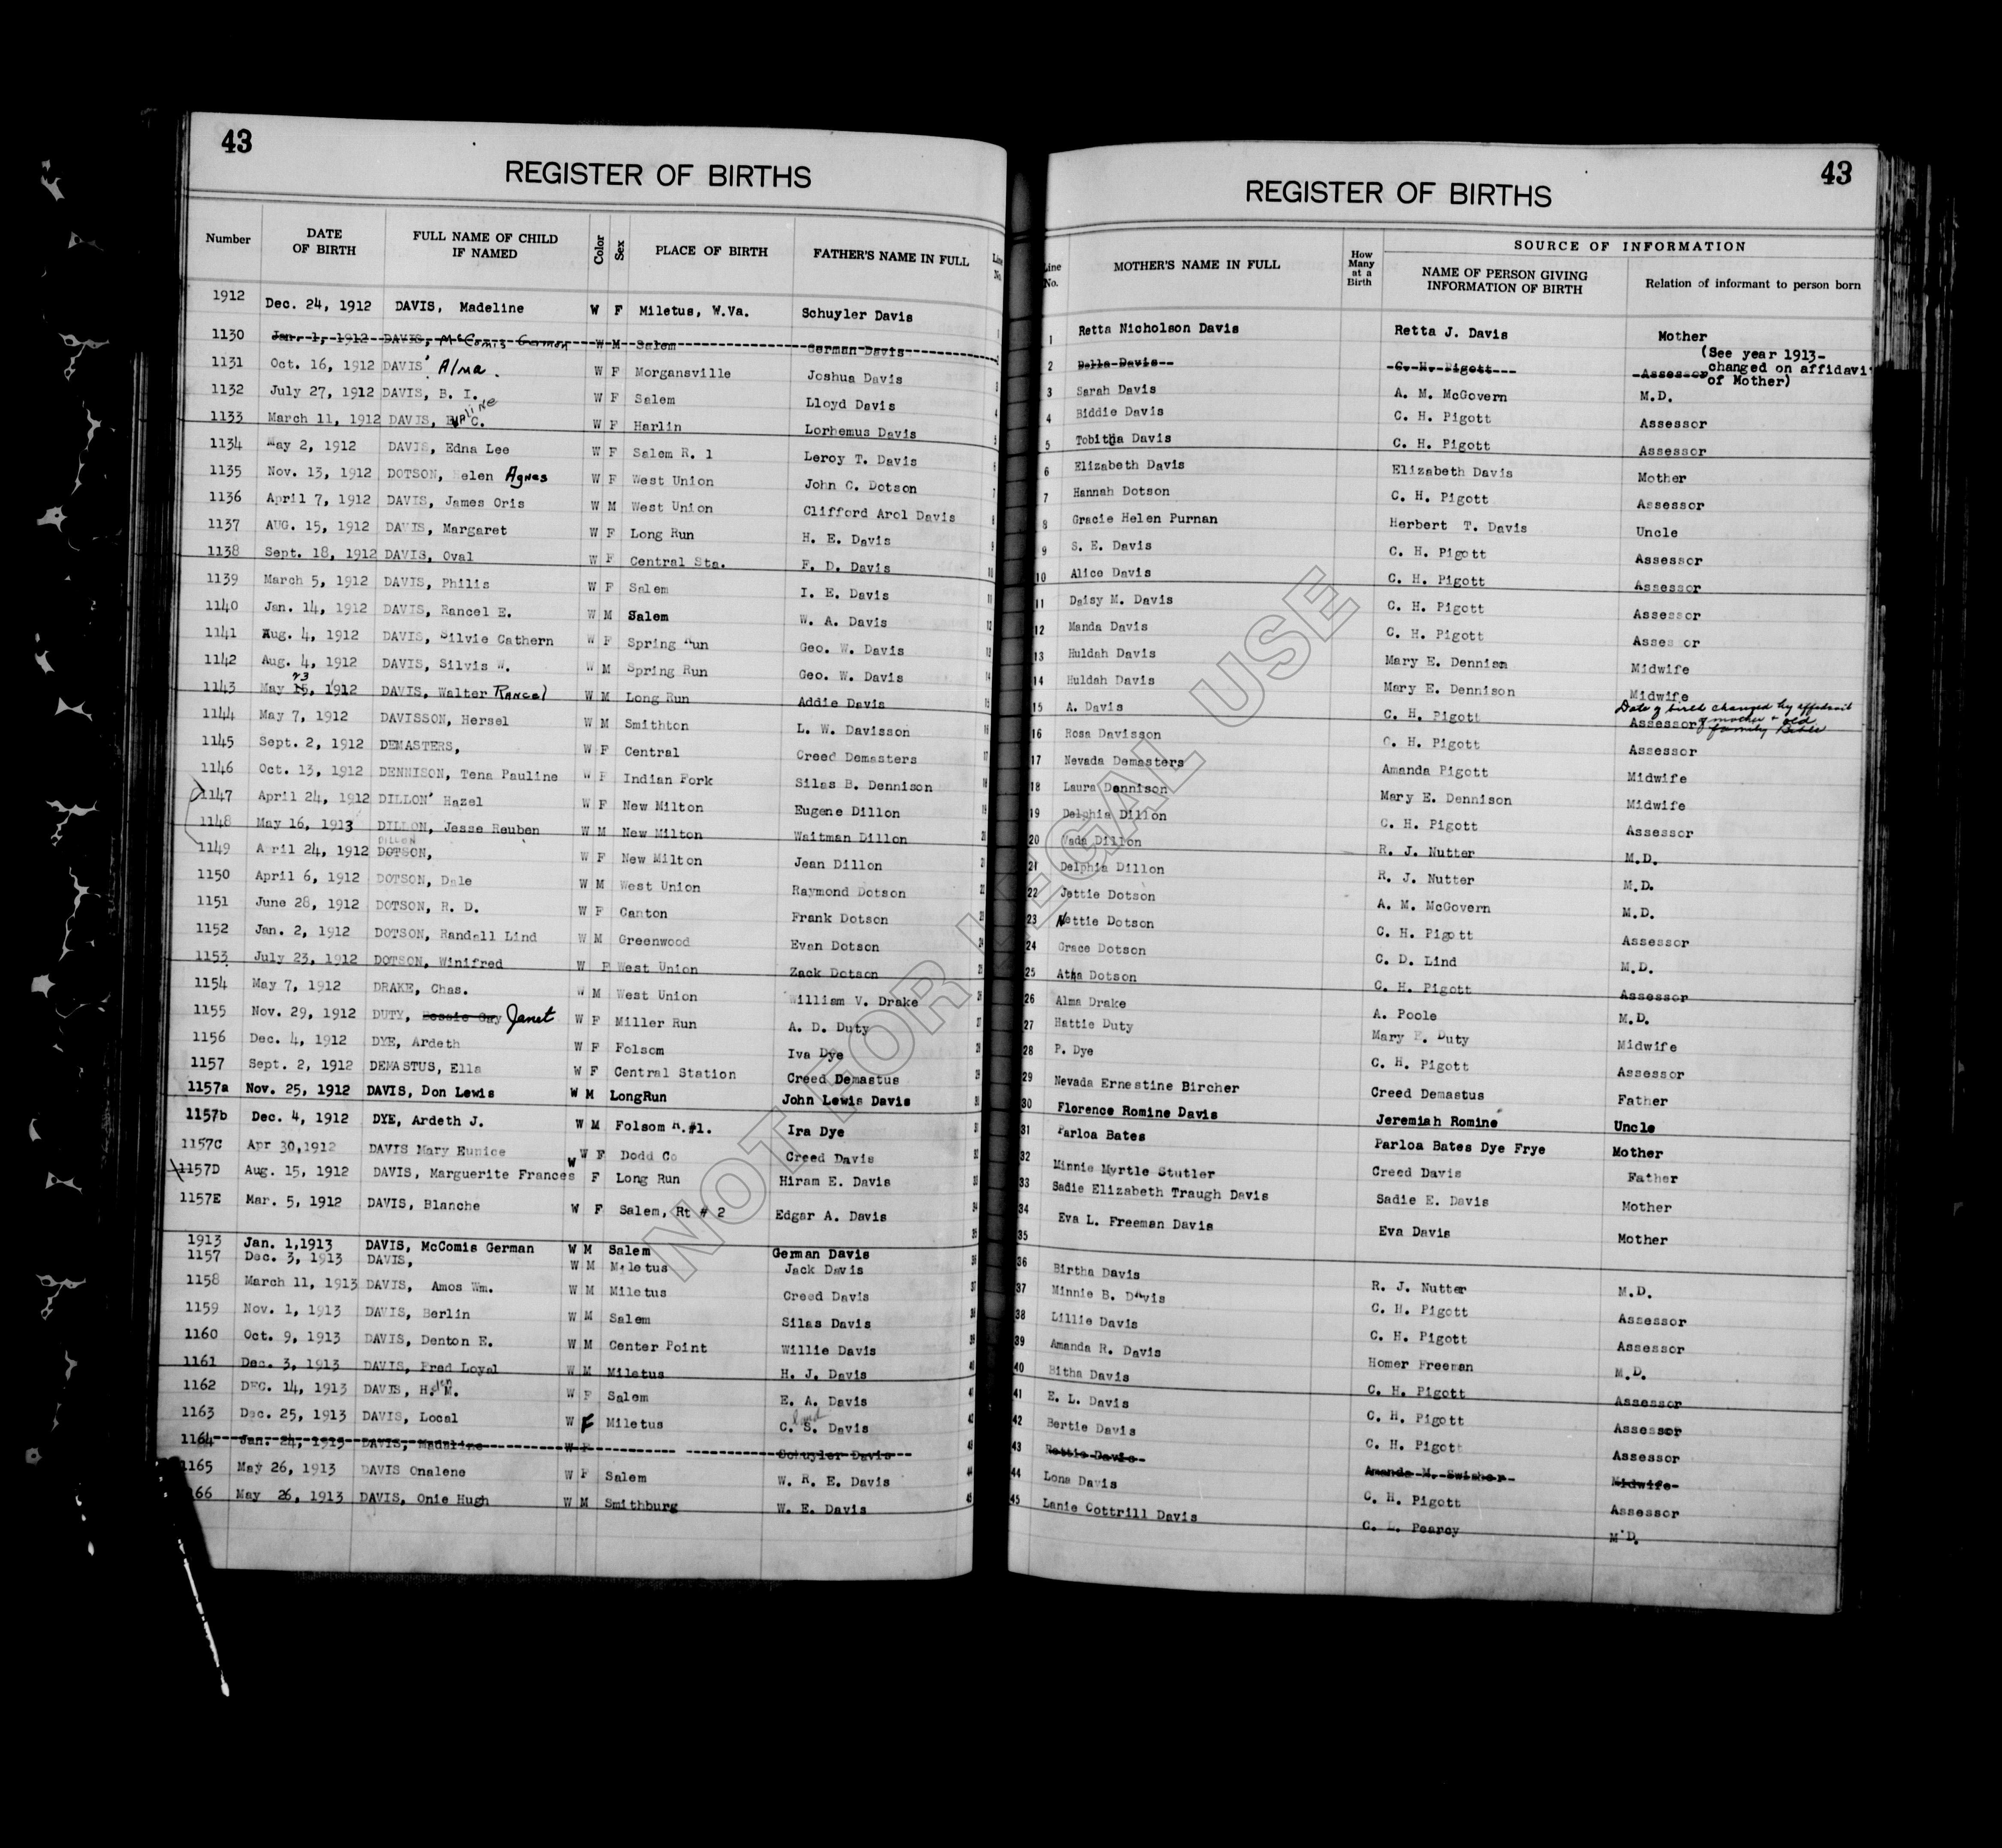 43
REGISTER OF BIRTHS
Number DATE OF BIRTH FULL NAME OF CHILD IF NAMED Color Sex PLACE OF BIRTH FATHER'S NAME IN FULL Line No.
1912 Dec. 24, 1912 DAVIS, Madeline W F Miletus, W.Va. Schuyler Davis
1130 Jan. 1, 1912 DAVIS, McComis German W M Salem German Davis
1131 Oct. 16, 1912 DAVIS' Alma. W F Morgansville Joshua Davis
1132 July 27, 1912 DAVIS, B. I. W F Salem Lloyd Davis
1133 March 11, 1912 DAVIS, C. W F Harlin Lorhemus Davis
1134 May 2, 1912 DAVIS, Edna Lee W F Salem R. 1 Leroy T. Davis
1135 Nov. 13, 1912 DOTSON, Helen Agnes W F West Union John C. Dotson
1136 April 7, 1912 DAVIS, James Oris W M West Union Clifford Arol Davis
1137 AUG. 15, 1912 DAVIS, Margaret W F Long Run H. E. Davis
1138 Sept. 18, 1912 DAVIS, Oval W F Central Sta. F. D. Davis
1139 March 5, 1912 DAVIS, Philis W F Salem I. E. Davis
1140 Jan. 14, 1912 DAVIS, Rancel E. W M Salem W. A. Davis
1141 Aug. 4, 1912 DAVIS, Silvie Cathern W F Spring Run Geo. W. Davis
1142 Aug. 4, 1912 DAVIS, Silvis W. W M Spring Run Geo. W. Davis
1143 May 15, 1912 23 DAVIS, Walter Rancel W M Long Run Addie Davis
1144 May 7, 1912 DAVISSON, Hersel W M Smithton L. W. Davisson
1145 Sept. 2, 1912 DEMASTERS, W F Central Creed Demasters
1146 Oct. 13, 1912 DENNISON, Tena Pauline W F Indian Fork Silas B. Dennison
1147 April 24, 1912 DILLON' Hazel W F New Milton Eugene Dillon
1148 May 16, 1913 DILLON, Jesse Reuben W M New Milton Waitman Dillon
1149 April 24, 1912 DOTSON, DILLON W F New Milton Jean Dillon
1150 April 6, 1912 DOTSON, Dale W M West Union Raymond Dotson
1151 June 28, 1912 DOTSON, R. D. W F Canton Frank Dotson
1152 Jan. 2, 1912 DOTSON, Randall Lind W M Greenwood Evan Dotson
1153 July 23, 1912 DOTSON, Winifred W F West Union Zack Dotson
1154 May 7, 1912 DRAKE, Chas. W M West Union William V. Drake
1155 Nov. 29, 1912 DUTY, Bessie Gay Janet W F Miller Run A. D. Duty
1156 Dec. 4, 1912 DYE, Ardeth W F Folsom Iva Dye
1157 Sept. 2, 1912 DEMASTUS, Ella W F Central Station Creed Demastus
1157a Nov. 25, 1912 DAVIS, Don Lewis W M LongRun John Lewis Davis
1157b Dec. 4, 1912 DYE, Ardeth J. W M Folsom R.#1. Ira Dye
1157C Apr 30,1912 DAVIS Mary Eunice W F Dodd Co Creed Davis
1157D Aug. 15, 1912 DAVIS, Marguerite Frances W F Long Run Hiram E. Davis
1157E Mar. 5, 1912 DAVIS, Blanche W F Salem, Rt # 2 Edgar A. Davis
1913 Jan. 1,1913 DAVIS, McComis German W M Salem German Davis
1157 Dec. 3, 1913 DAVIS, W M Miletus Jack Davis
1158 March 11, 1913 DAVIS, Amos Wm. W M Miletus Creed Davis
1159 Nov. 1, 1913 DAVIS, Berlin W M Salem Silas Davis
1160 Oct. 9, 1913 DAVIS, Denton E. W M Center Point Willie Davis
1161 Dec. 3, 1913 DAVIS, Fred Loyal W M Miletus H. J. Davis
1162 DEC. 14, 1913 DAVIS, H. M. W F Salem E. A. Davis
1163 Dec. 25, 1913 DAVIS, Local W F Miletus C. S. Davis
1164 Jan. 24, 1913 DAVIS, Madaline W F Schuyler Davis
1165 May 26, 1913 DAVIS Onalene W F Salem W. R. E. Davis
66 May 26, 1913 DAVIS, Onie Hugh W M Smithburg W. E. Davis
43
REGISTER OF BIRTHS
Line No. MOTHER'S NAME IN FULL How Many at a Birth SOURCE OF INFORMATION
NAME OF PERSON GIVING INFORMATION OF BIRTH Relation of informant to person born
1 Retta Nicholson Davis Retta J. Davis Mother
2 Della Davis C. H. Pigott Assessor (See year 1913- changed on affidavi of Mother)
3 Sarah Davis A. M. McGovern M.D.
4 Biddie Davis C. H. Pigott Assessor
5 Tobitha Davis C. H. Pigott Assessor
6 Elizabeth Davis Elizabeth Davis Mother
7 Hannah Dotson C. H. Pigott Assessor
8 Gracie Helen Purnan Herbert T. Davis Uncle
9 S. E. Davis C. H. Pigott Assessor
10 Alice Davis C. H. Pigott Assessor
11 Daisy M. Davis C. H. Pigott Assessor
12 Manda Davis C. H. Pigott Asses or
13 Huldah Davis Mary E. Dennison Midwife
14 Huldah Davis Mary E. Dennison Midwife
15 A. Davis C. H. Pigott Assessor Date of birth changed by affidavit of mother & old family Bible
16 Rosa Davisson C. H. Pigott Assessor
17 Nevada Demasters Amanda Pigott Midwife
18 Laura Dennison Mary E. Dennison Midwife
19 Delphia Dillon C. H. Pigott Assessor
20 Wada Dillon R. J. Nutter M.D.
21 Delphia Dillon R. J. Nutter M.D.
22 Jettie Dotson A. M. McGovern M.D.
23 Nettie Dotson C. H. Pigott Assessor
24 Grace Dotson C. D. Lind M.D.
25 Atha Dotson C. H. Pigott Assessor
26 Alma Drake A. Poole M.D.
27 Hattie Duty Mary F. Duty Midwife
28 P. Dye C. H. Pigott Assessor
29 Nevada Ernestine Bircher Creed Demastus Father
30 Florence Romine Davis Jeremiah Romine Uncle
31 Parloa Bates Parloa Bates Dye Frye Mother
32 Minnie Myrtle Stutler Creed Davis Father
33 Sadie Elizabeth Traugh Davis Sadie E. Davis Mother
34 Eva L. Freeman Davis Eva Davis Mother
35
36 Birtha Davis R. J. Nutter M.D.
37 Minnie B. Davis C. H. Pigott Assessor
38 Lillie Davis C. H. Pigott Assessor
39 Amanda R. Davis Homer Freeman M.D.
40 Bitha Davis C. H. Pigott Assessor
41 E. L. Davis C. H. Pigott Assessor
42 Bertie Davis C. H. Pigott Assessor
43 Rettie Davis Amanda M. Swisher Midwife
44 Lona Davis C. H. Pigott Assessor
45 Lanie Cottrill Davis C. L. Pearcy M.D.
NOT FOR LEGAL USE